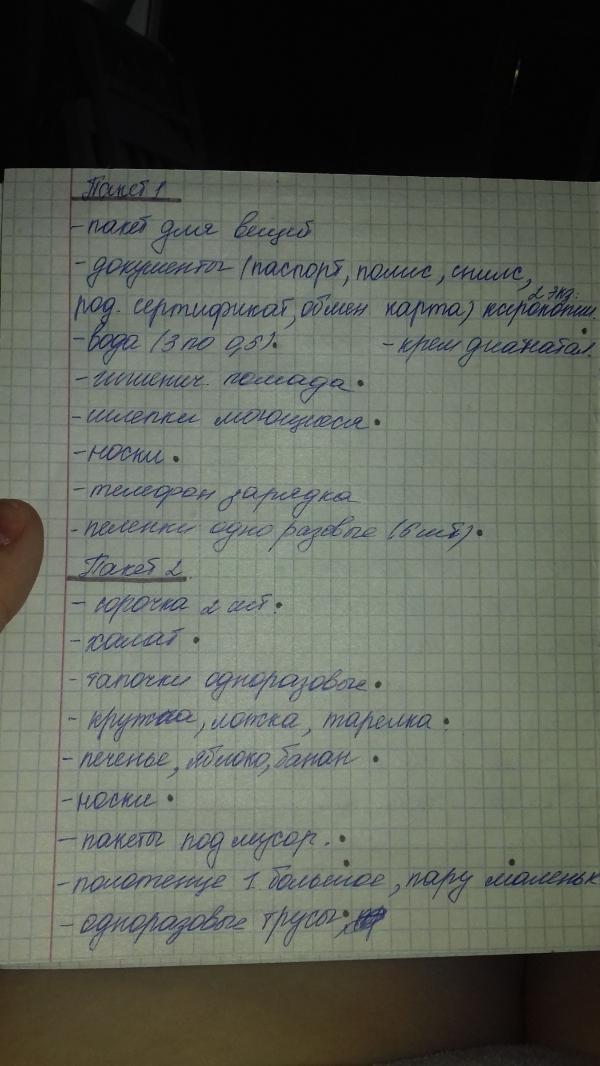 Пакет 1
- пакет для вещей
- документы (паспорт, полис, снилс,
2 экз.
род. сертификат, обмен карта) ксерокопии.
- вода (3 по 0,5). - крем дианатал.
- гигиенич. помада.
- шлепки моющиеся.
- носки.
- телефон зарядка
- пеленки одноразовые (6 шт).
Пакет 2
- сорочка 2 шт.
- халат.
- тапочки одноразовые.
- кружка, ложка, тарелка.
- печенье, яблоко, банан.
- носки.
- пакеты под мусор.
- полотенце 1 большое, пару маленьк
- одноразовые трусы.